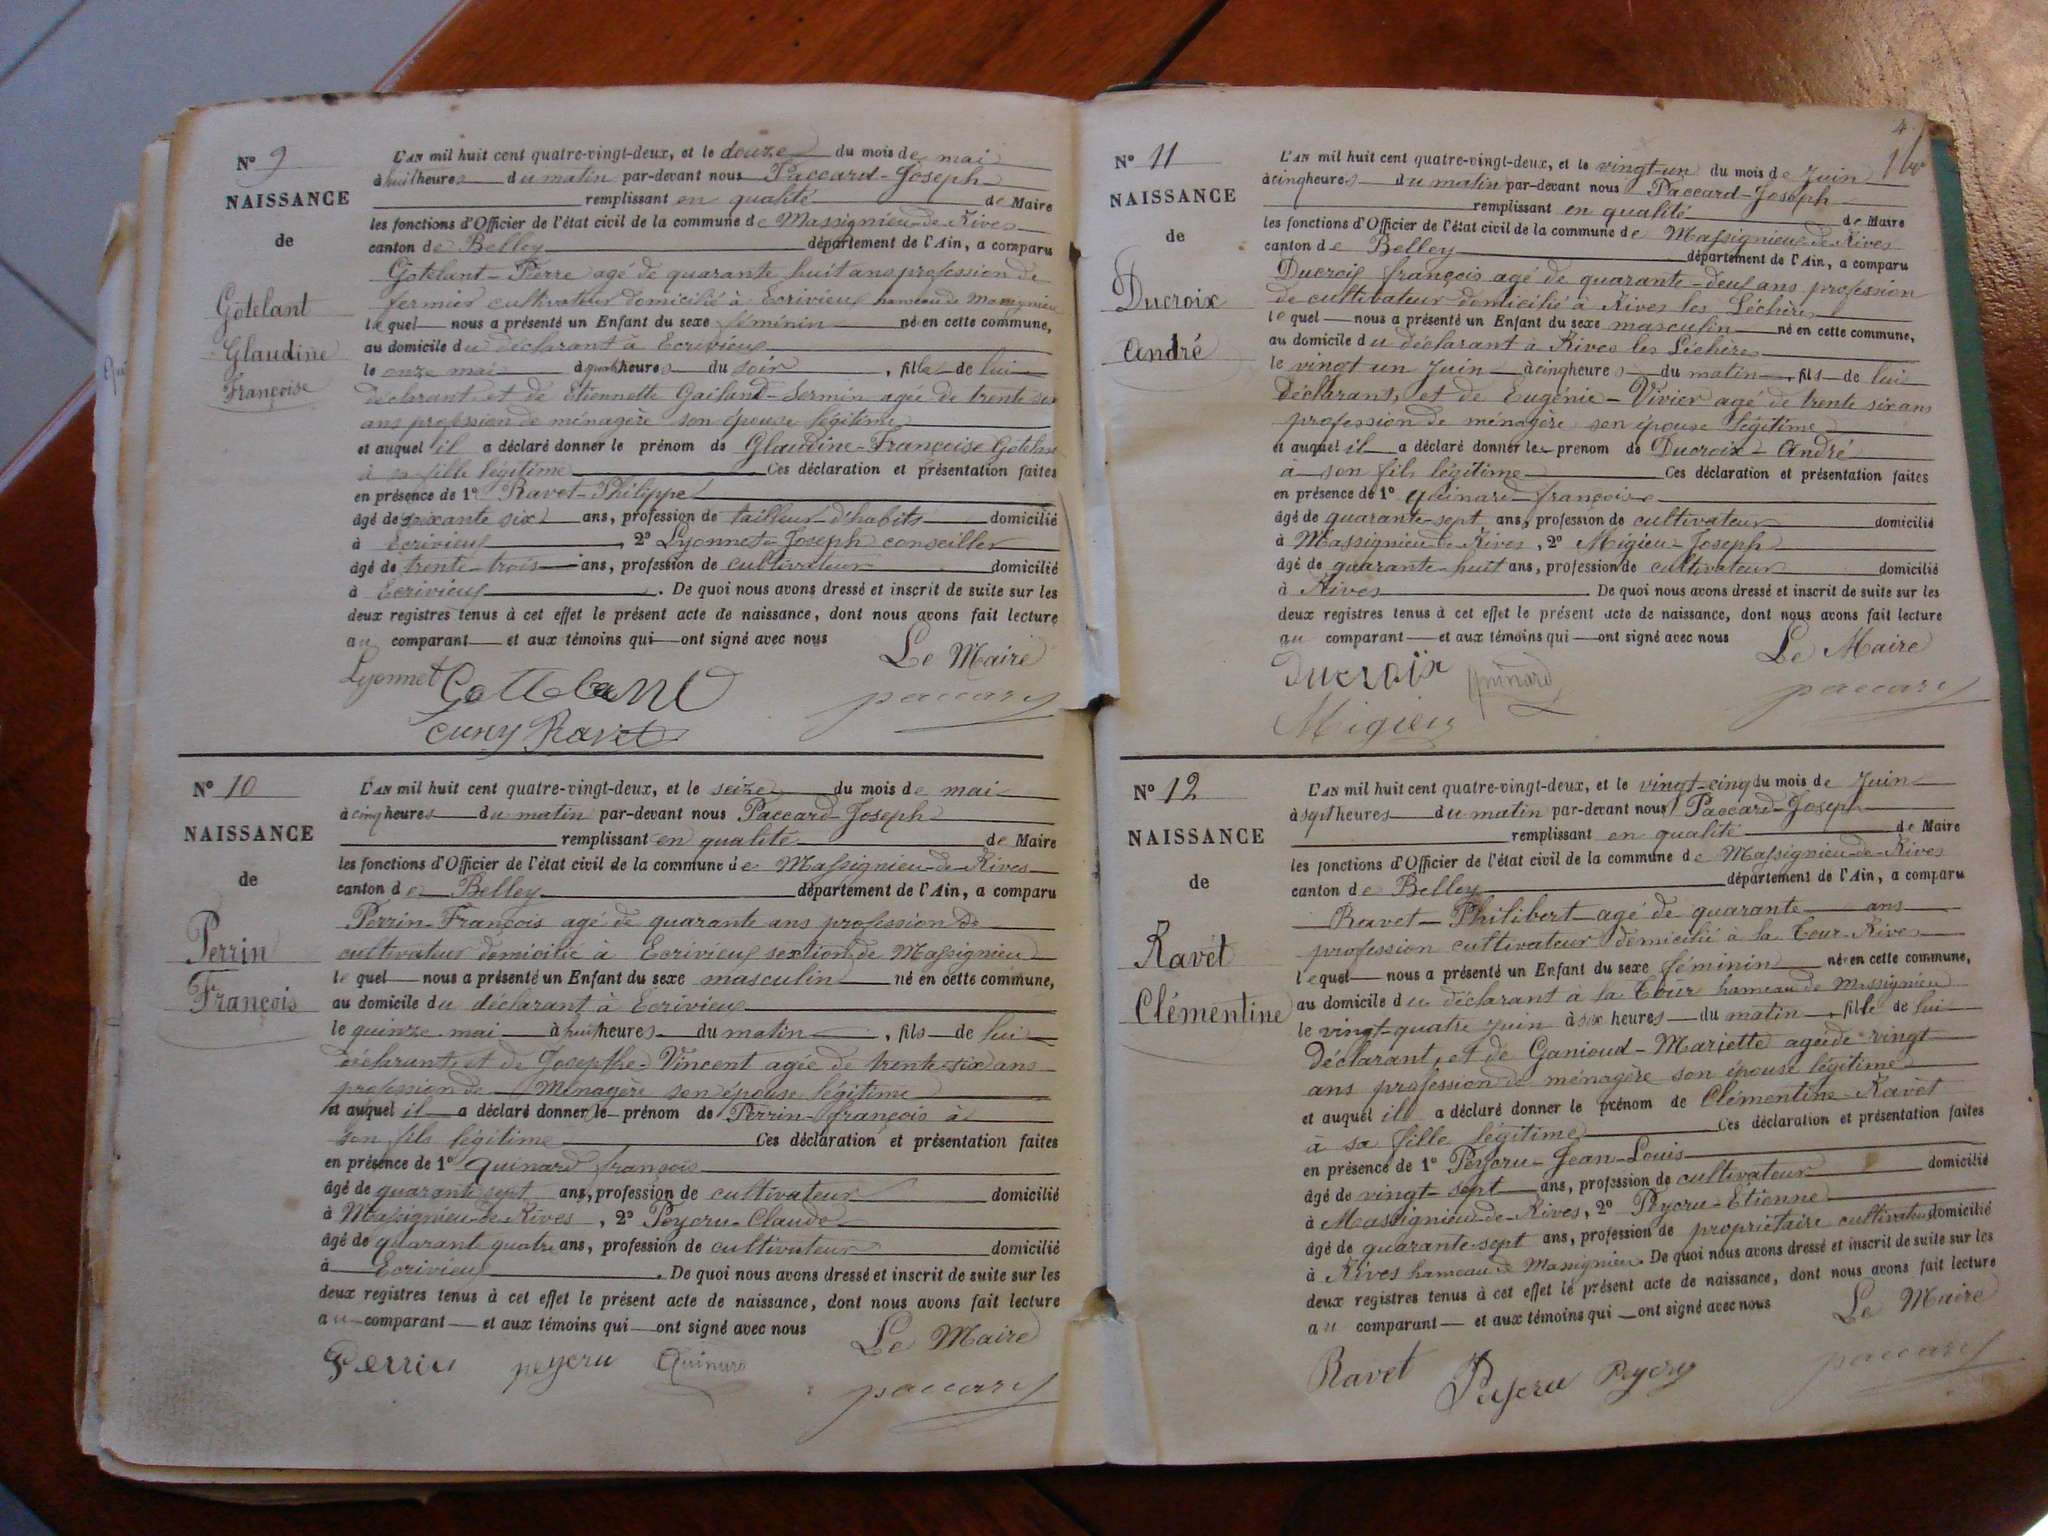 N° 9
NAISSANCE
de
Gotelant
Glaudine
Françoise
L'AN mil huit cent quatre-vingt-deux, et le douze du mois de mai
à huit heures du matin par-devant nous Paccard-Joseph
remplissant en qualité de Maire
les fonctions d'Officier de l'état civil de la commune de Massignieu-de-Rives
canton de Belley département de l'Ain, a comparu
Gotelant-Pierre agé de quarante huit ans profession de
fermier cultivateur domicilié à Ecrivieux hameau de Massignieu
lequel nous a présenté un Enfant du sexe féminin né en cette commune,
au domicile du déclarant à Ecrivieux
le onze mai à heures du soir, fille de lui
déclarant, et de Etiennette Gailand-Sermin agée de trente six
ans profession de ménagère son épouse légitime
et auquel il a déclaré donner le prénom de Glaudine-Françoise Gotelant
à sa fille légitime Ces déclaration et présentation faites
en présence de 1° Ravet-Philippe
âgé de soixante six ans, profession de tailleur d'habits domicilié
à Ecrivieux, 2° Lyonnet-Joseph conseiller
âgé de trente-trois ans, profession de cultivateur domicilié
à Ecrivieux. De quoi nous avons dressé et inscrit de suite sur les
deux registres tenus à cet effet le présent acte de naissance, dont nous avons fait lecture
au comparant et aux témoins qui ont signé avec nous
Le Maire
Lyonnet Gottelant
paccard
Ravet
N° 10
NAISSANCE
de
Perrin
François
L'AN mil huit cent quatre-vingt-deux, et le seize du mois de mai
à cinq heures du matin par-devant nous Paccard-Joseph
remplissant en qualité de Maire
les fonctions d'Officier de l'état civil de la commune de Massignieu-de-Rives
canton de Belley département de l'Ain, a comparu
Perrin-François agé de quarante ans profession de
cultivateur domicilié à Ecrivieux sextion de Massignieu
lequel nous a présenté un Enfant du sexe masculin né en cette commune,
au domicile du déclarant à Ecrivieux
le quinze mai à huit heures du matin, fils de lui
déclarant, et de Josepthe-Vincent agée de trente-six ans
profession de Ménagère son épouse légitime
et auquel il a déclaré donner le prénom de Perrin-françois à
son fils légitime Ces déclaration et présentation faites
en présence de 1° Quinard françois
âgé de quarante sept ans, profession de cultivateur domicilié
à Massignieu-de-Rives, 2° Peycru-Claude
âgé de quarante quatre ans, profession de cultivateur domicilié
à Ecrivieux. De quoi nous avons dressé et inscrit de suite sur les
deux registres tenus à cet effet le présent acte de naissance, dont nous avons fait lecture
au comparant et aux témoins qui ont signé avec nous
Le Maire
Perrin peycru Quinard
paccard
4
N° 11
NAISSANCE
de
Ducroix
André
L'AN mil huit cent quatre-vingt-deux, et le vingt-un du mois de Juin
à cinq heures du matin par-devant nous Paccard-Joseph
remplissant en qualité de Maire
les fonctions d'Officier de l'état civil de la commune de Massignieu-de-Rives
canton de Belley département de l'Ain, a comparu
Ducroix françois agé de quarante-deux ans profession
de cultivateur domicilié à Rives les Léchères
lequel nous a présenté un Enfant du sexe masculin né en cette commune,
au domicile du déclarant à Rives les Léchères
le vingt un Juin à cinq heures du matin, fils de lui
Déclarant, et de Eugénie-Vivier agé de trente six ans
profession de ménagère son épouse légitime
et auquel il a déclaré donner les prenom de Ducroix-André
à son fils légitime Ces déclaration et présentation faites
en présence de 1° Quinard françois
âgé de quarante-sept ans, profession de cultivateur domicilié
à Massignieu de Rives, 2° Migieu-Joseph
âgé de quarante-huit ans, profession de cultivateur domicilié
à Rives. De quoi nous avons dressé et inscrit de suite sur les
deux registres tenus à cet effet le présent acte de naissance, dont nous avons fait lecture
au comparant et aux témoins qui ont signé avec nous
Le Maire
Ducroix Quinard
paccard
Migieu
N° 12
NAISSANCE
de
Ravet
Clémentine
L'AN mil huit cent quatre-vingt-deux, et le vingt-cinq du mois de Juin
à sept heures du matin par-devant nous Paccard-Joseph
remplissant en qualité de Maire
les fonctions d'Officier de l'état civil de la commune de Massignieu-de-Rives
canton de Belley département de l'Ain, a comparu
Ravet-Philibert agé de quarante ans
profession cultivateur domicilié à la Tour-Rives
lequel nous a présenté un Enfant du sexe féminin né en cette commune,
au domicile du déclarant à la Tour hameau de Massignieu
le vingt-quatre Juin à six heures du matin, fille de lui
Déclarant, et de Ganioud-Mariette agée de vingt
ans profession de ménagère son épouse légitime
et auquel il a déclaré donner le prénom de Clémentine-Ravet
à sa fille légitime Ces déclaration et présentation faites
en présence de 1° Peycru-Jean-Louis
âgé de vingt-sept ans, profession de cultivateur domicilié
à Massignieu-de-Rives, 2° Peycru-Etienne
âgé de quarante-sept ans, profession de propriétaire cultivateur domicilié
à Rives hameau de Massignieu. De quoi nous avons dressé et inscrit de suite sur les
deux registres tenus à cet effet le présent acte de naissance, dont nous avons fait lecture
au comparant et aux témoins qui ont signé avec nous
Le Maire
Ravet Peycru Peycru
paccard